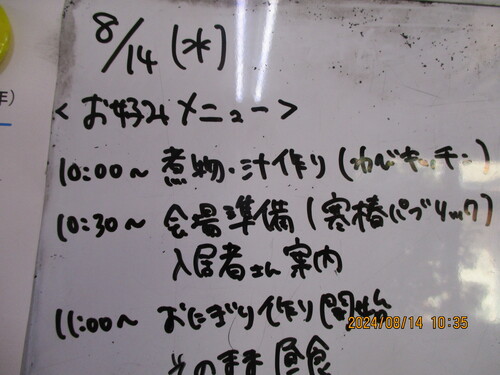 8/14 (水)
年)
<お好みメニュー>
10:00~ 煮物・汁作り (わびキッチン)
10:30~ 会場準備 (寒椿パブリック)
入居者さん案内
11:00~ おにぎり作り開始
2024/08/14 10:35
そのまま昼食